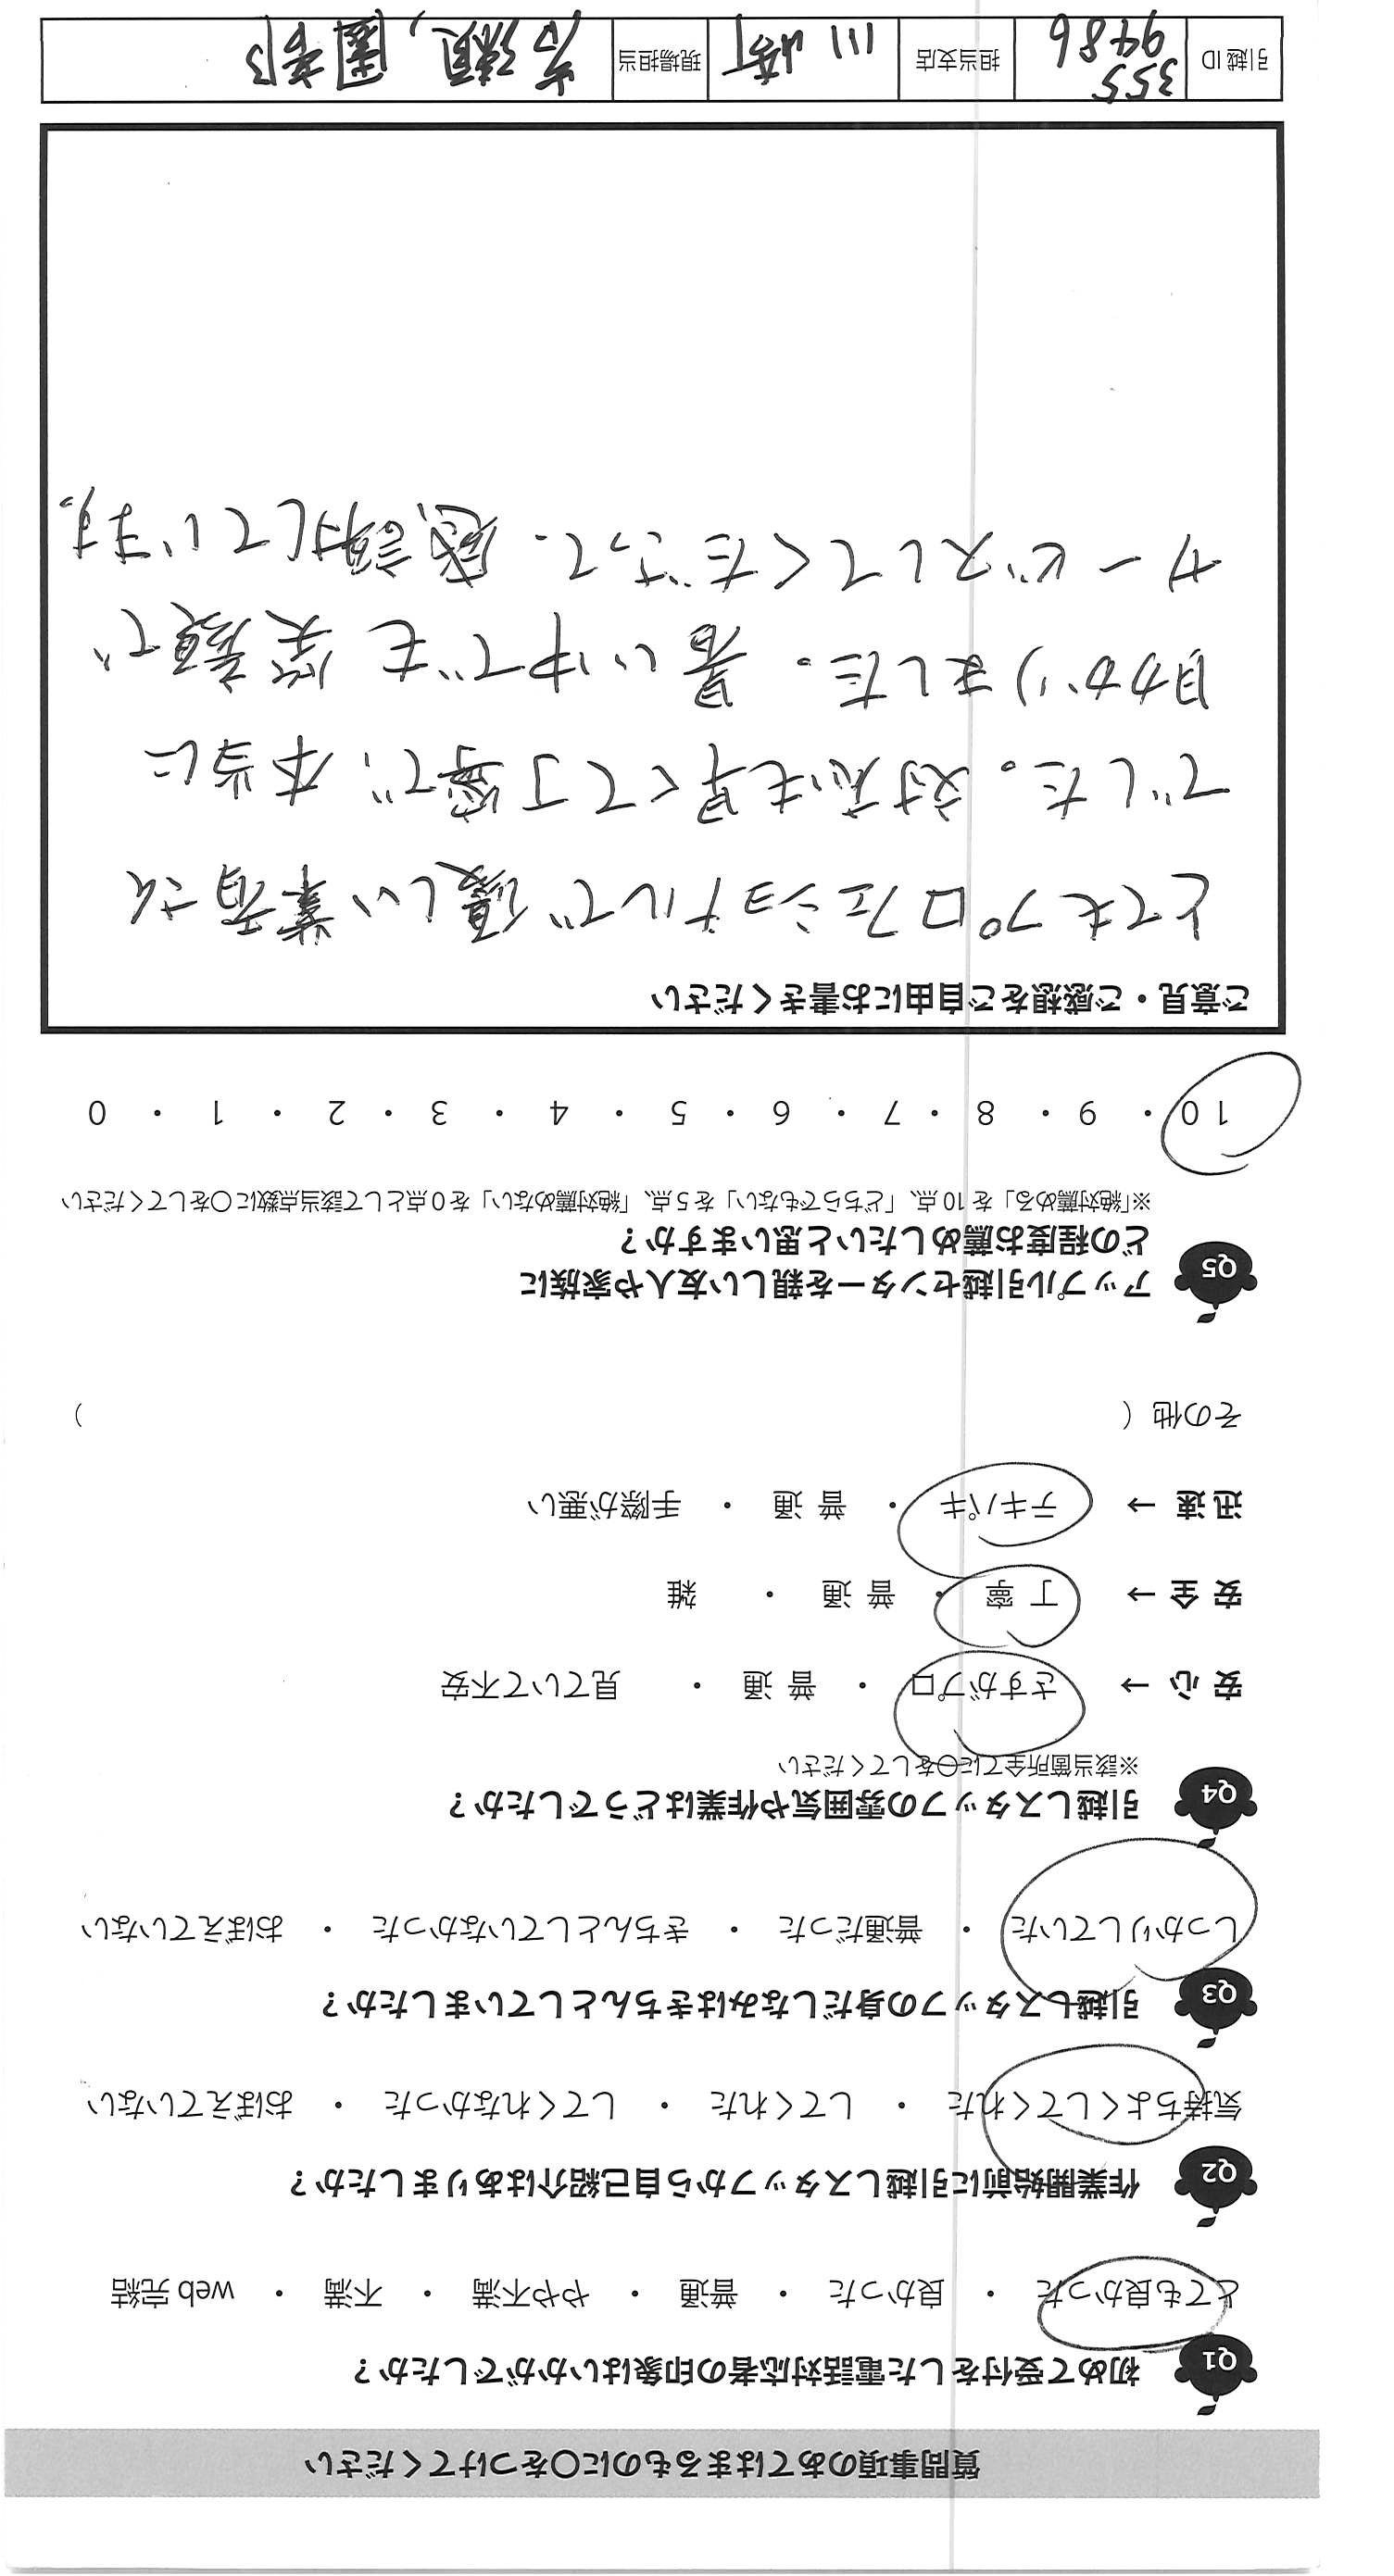 質問事項のあてはまるものに〇をつけてください
Q1 初めて受付をした電話対応者の印象はいかがでしたか？
とても良かった ・ 良かった ・ 普通 ・ やや不満 ・ 不満 ・ web 完結
Q2 作業開始前に引越しスタッフから自己紹介はありましたか？
気持ちよくしてくれた ・ してくれた ・ してくれなかった ・ おぼえていない
Q3 引越しスタッフの身だしなみはきちんとしていましたか？
しっかりしていた ・ 普通だった ・ きちんとしていなかった ・ おぼえていない
Q4 引越しスタッフの雰囲気や作業はどうでしたか？
※該当箇所全てに〇をしてください
安 心 → さすがプロ ・ 普 通 ・ 見ていて不安
安 全 → 丁 寧 ・ 普 通 ・ 雑
迅 速 → テキパキ ・ 普 通 ・ 手際が悪い
その他（ ）
Q5 アップル引越センターを親しい友人や家族に
どの程度お薦めしたいと思いますか？
※「絶対薦める」を 10 点、「どちらでもない」を 5 点、「絶対薦めない」を 0 点として該当点数に〇をしてください
10 ・ 9 ・ 8 ・ 7 ・ 6 ・ 5 ・ 4 ・ 3 ・ 2 ・ 1 ・ 0
ご意見・ご感想をご自由にお書きください
とてもプロフェショナルで優しい業者さん
でした。対応も早くて丁寧で、本当に
助かりました。暑い中でも笑顔で
サービスしてくださって、感謝しています。
引越 ID 355
9486 担当支店 川崎 現場担当